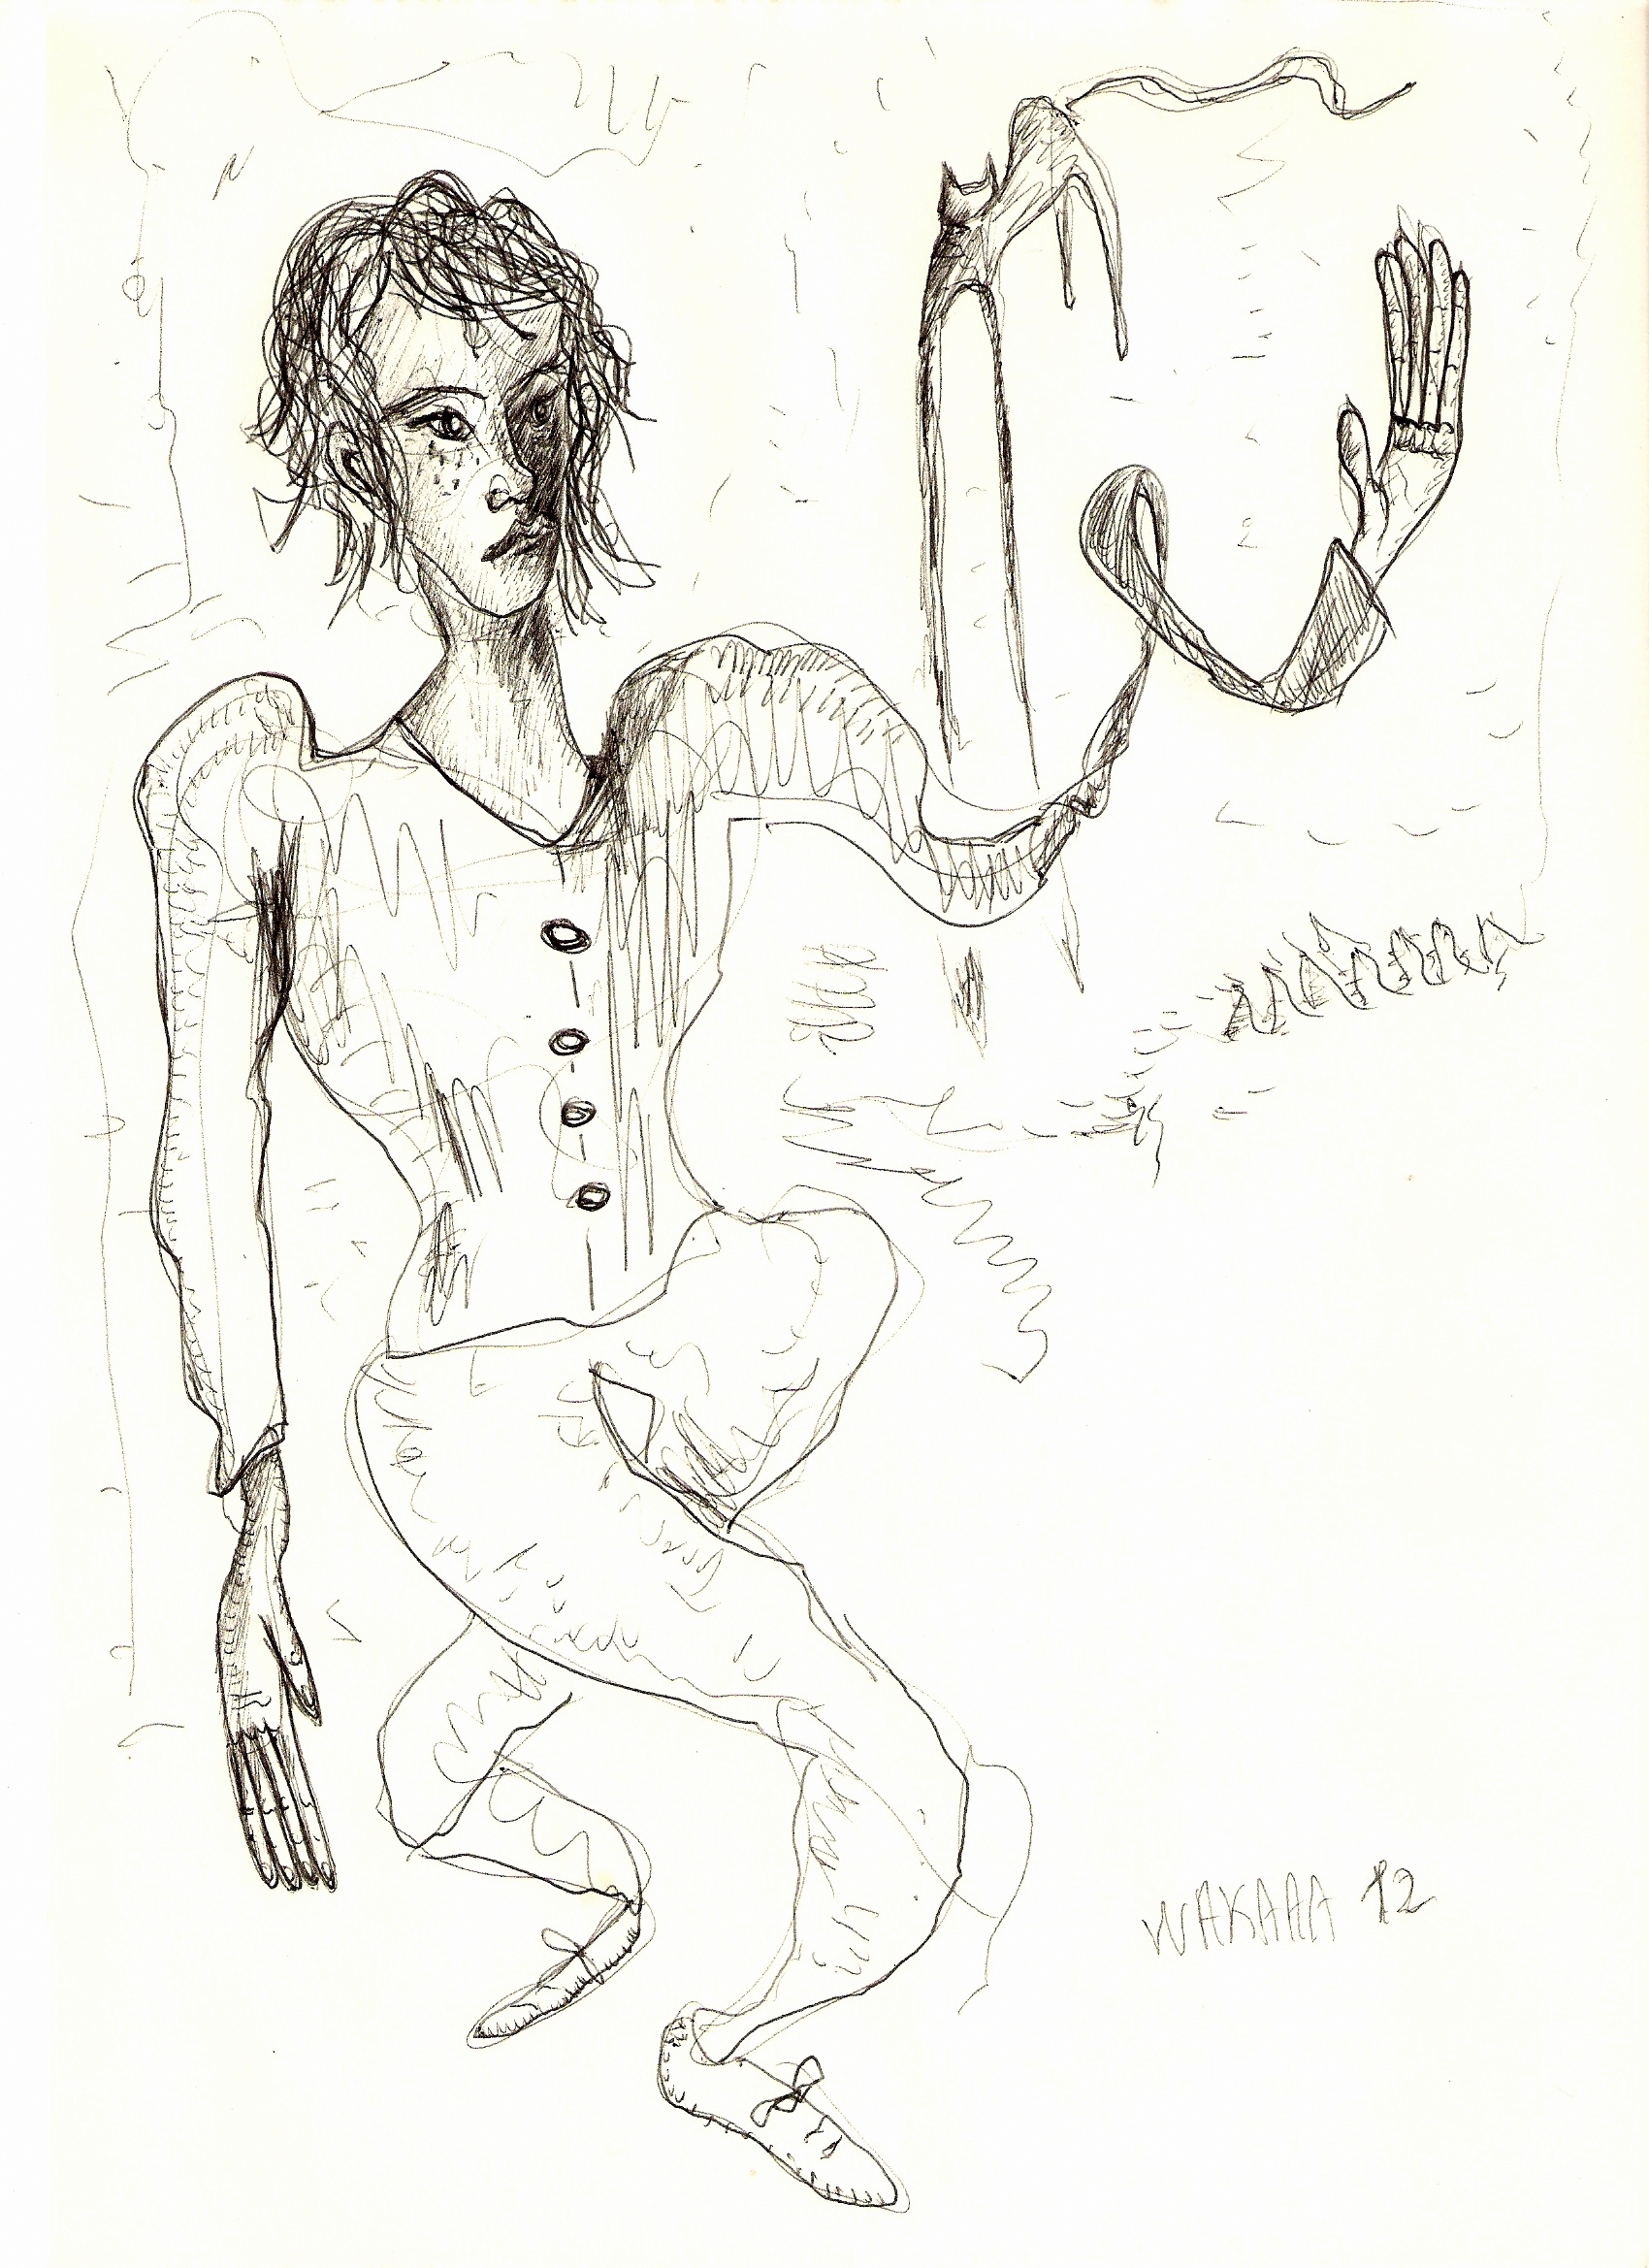 WAKAAA 12